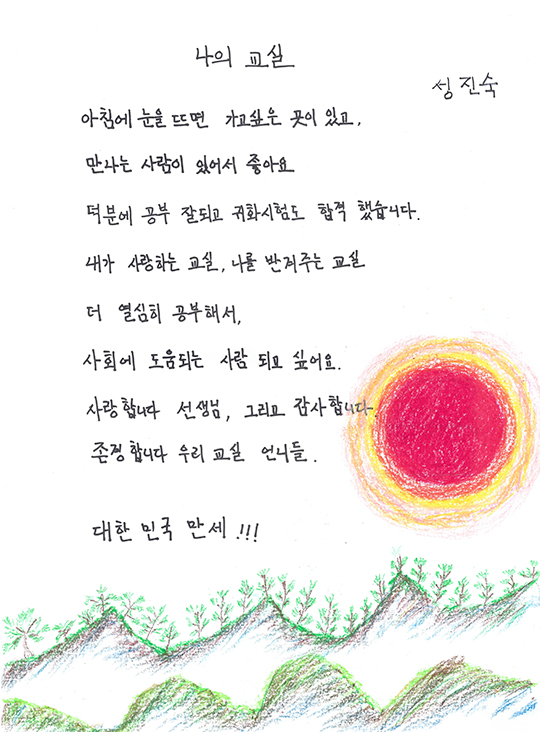 나의 교실
성진숙
아침에 눈을 뜨면 가고싶은 곳이 있고,
만나는 사람이 있어서 좋아요
덕분에 공부 잘되고 귀화시험도 합격 했습니다.
내가 사랑하는 교실, 나를 반겨주는 교실
더 열심히 공부해서,
사회에 도움되는 사람 되고 싶어요.
사랑합니다 선생님, 그리고 감사합니다
존경합니다 우리 교실 언니들.
대한 민국 만세 !!!